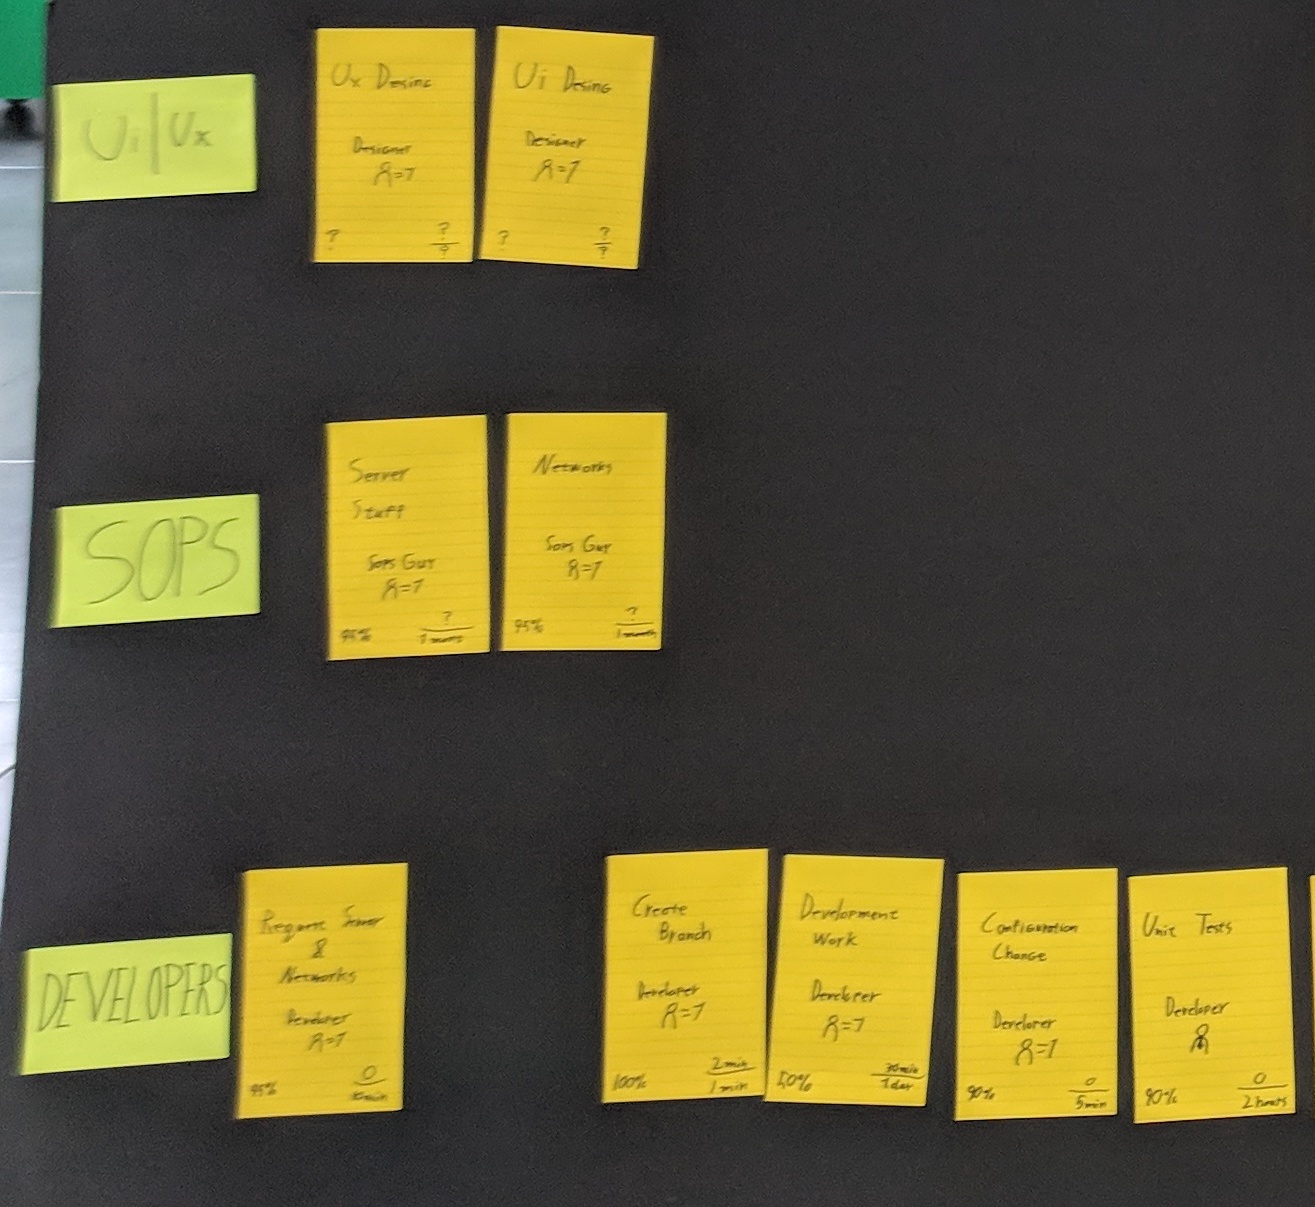 Ui|Ux
Ux Desing
Designer
=1
?
?
?
Ui Desing
Designer
=1
?
?
?
SOPS
Server
Stuff
Sops Guy
=1
95%
?
Networks
Sops Guy
=1
95%
?
1 month
DEVELOPERS
Request Server
&
Networks
Developer
=1
95%
0
10min
Create
Branch
Developer
=1
100%
2min
1min
Development
Work
Developer
=1
50%
30min
1day
Configuration
Change
Developer
=1
90%
0
5min
Unit Tests
Developer
90%
0
2hours